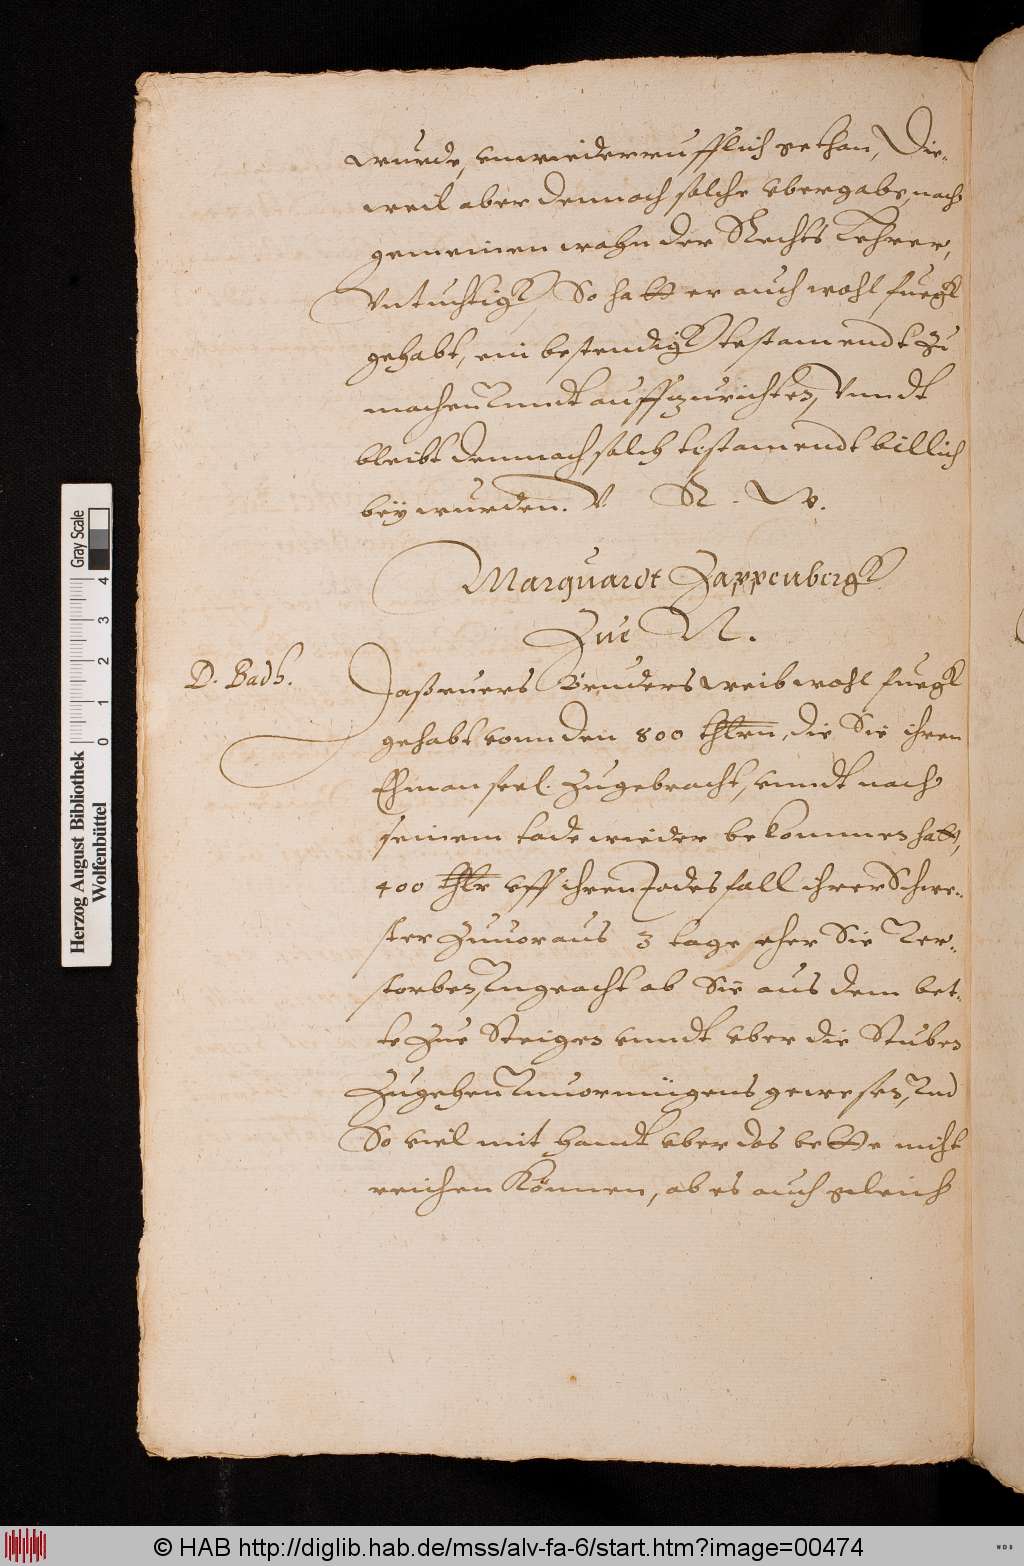 wurde, unwiederrufflich gethan, Die-
weil aber dennoch solche ubergabe, nach
gemeinen wahn der Rechts Lehrer,
Untuchtigk, So hatt er auch wohl fuegk
gehabt, ein bestendigk testamendt zu
machen Vnndt auffzurichten, Vnndt
bleibt demnach solch testamendt billich
bey wurden. V. R. W.
Marquardt Zappenbergk
Zue N.
D. Badh.
Daß euers Bruders weib wohl fuegk
gehabt vonn den 800 thlrn, die Sie ihren
Ehman seel. zugebracht, unndt nach
seinem tode wieder bekommen hatt,
400 thlr uff ihren Todesfall ihrer Schwe-
ster zuuoraus 3 tage eher Sie Ver-
storben, Vngeacht ob Sie aus dem bet-
te zue Steigen unndt uber die Stuben
zugehen Vnuormügens gewesen, Vnd
So viel mit handt uber das bette nicht
reichen Können, ob es auch gleich
Herzog August Bibliothek
Wolfenbüttel
Gray Scale
0 1 2 3 4
© HAB http://diglib.hab.de/mss/alv-fa-6/start.htm?image=00474